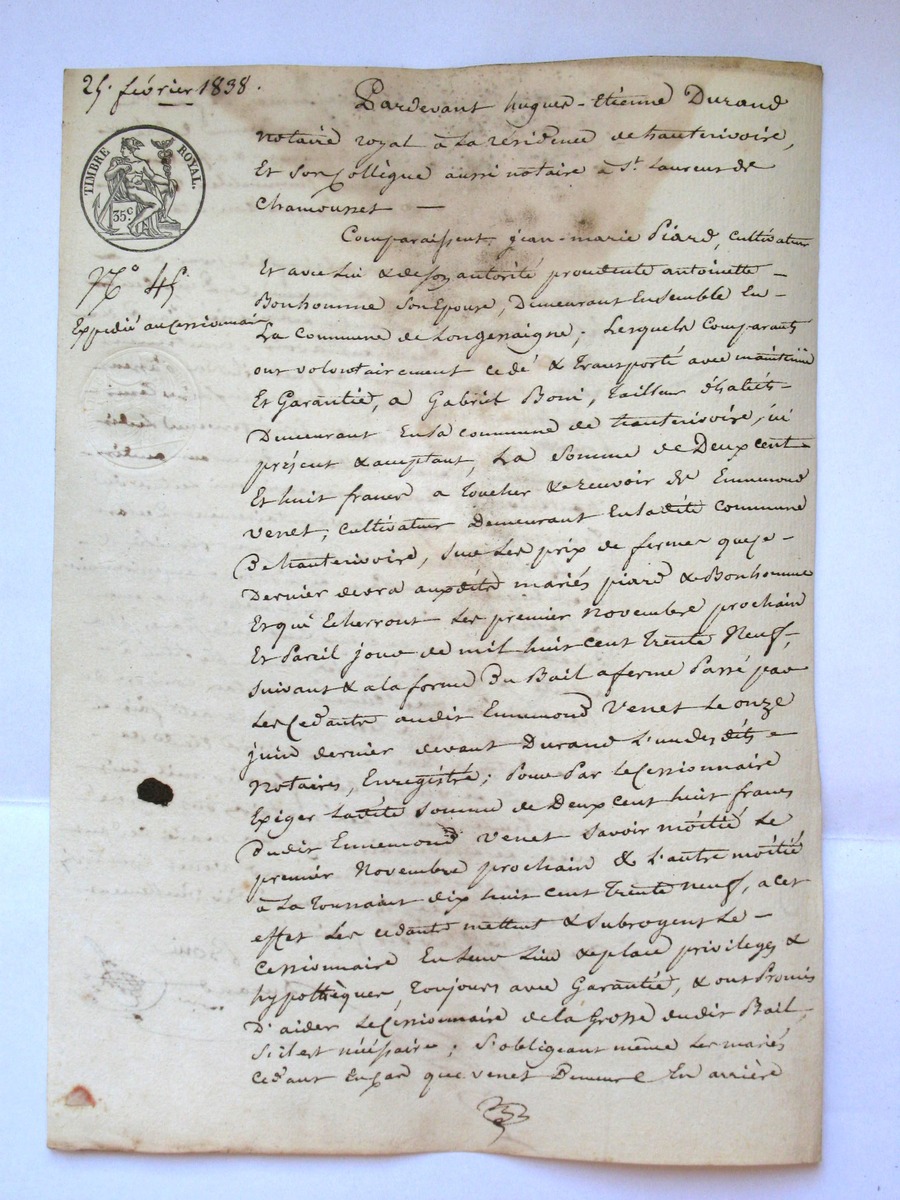 25. février 1838.
TIMBRE ROYAL.
35c.
N.° 45.
Expédié au Cessionnaire
Pardevant hugues-Etienne Durand
Notaire royal à La résidence de hauterivoire,
Et Son Collègue aussi notaire à St. Laurent de
Chamousset —
Comparaissent jean-marie Piard, cultivateur
Et avec Lui & de son autorité procédente antoinette —
Bonhomme Son Epouse, Demeurant Ensemble En —
La Commune de Longessaigne; Lesquels Comparants
ont volontairement cédé & transporté avec maintenue
Et Garantie, a Gabriel Boni, tailleur d'habits —
Demeurant En la commune de hauterivoire, ici
présent & acceptant, La Somme de Deux cent —
Et huit francs a toucher & recevoir de Emmond
Venet, cultivateur demeurant En ladite commune
De hauterivoire, sur Les prix de fermes que ce —
Dernier devra auxdits mariés piard & Bonhomme
Et qui Echerront Les premier Novembre prochain
Et Pareil jour de mil huit cent trente Neuf,
suivant & a la forme Du Bail a ferme Passé par
Les Cedants audit Emmond Venet Le onze
juin dernier devant Durand L'un desdits —
Notaires, Enregistré; Pour Par le Cessionnaire
Exiger Ladite Somme de Deux cent huit francs
Dudit Ennemond Venet Savoir moitié Le
premier Novembre prochain & L'autre moitié
à La Toussaint dix huit cent trente neuf, a cet
effet Les cedants mettent & subrogent Le —
Cessionnaire En leur Lieu & place privileges &
hypothèques, toujours avec Garantie, & ont Promis
D'aider Le Cessionnaire de la Grosse dudit Bail,
s'il est nécessaire; S'obligeant même Les mariés
Cedant En cas que Venet Demeure En arrière